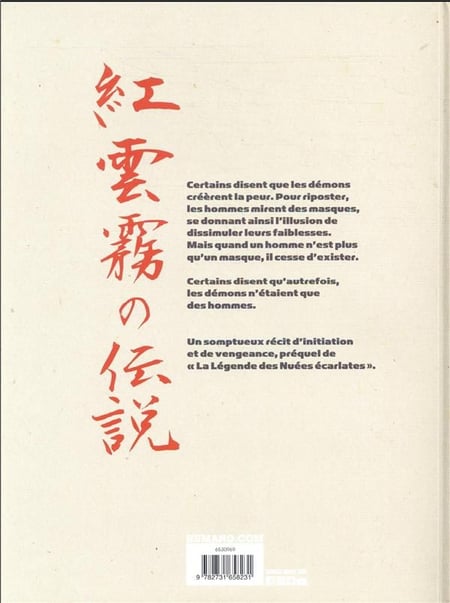 紅雲霧の伝説
Certains disent que les démons
créèrent la peur. Pour riposter,
les hommes mirent des masques,
se donnant ainsi l'illusion de
dissimuler leurs faiblesses.
Mais quand un homme n'est plus
qu'un masque, il cesse d'exister.
Certains disent qu'autrefois,
les démons n'étaient que
des hommes.
Un somptueux récit d'initiation
et de vengeance, préquel de
« La Légende des Nuées écarlates ».
HUMANO.COM
6530969
9 782731 658231